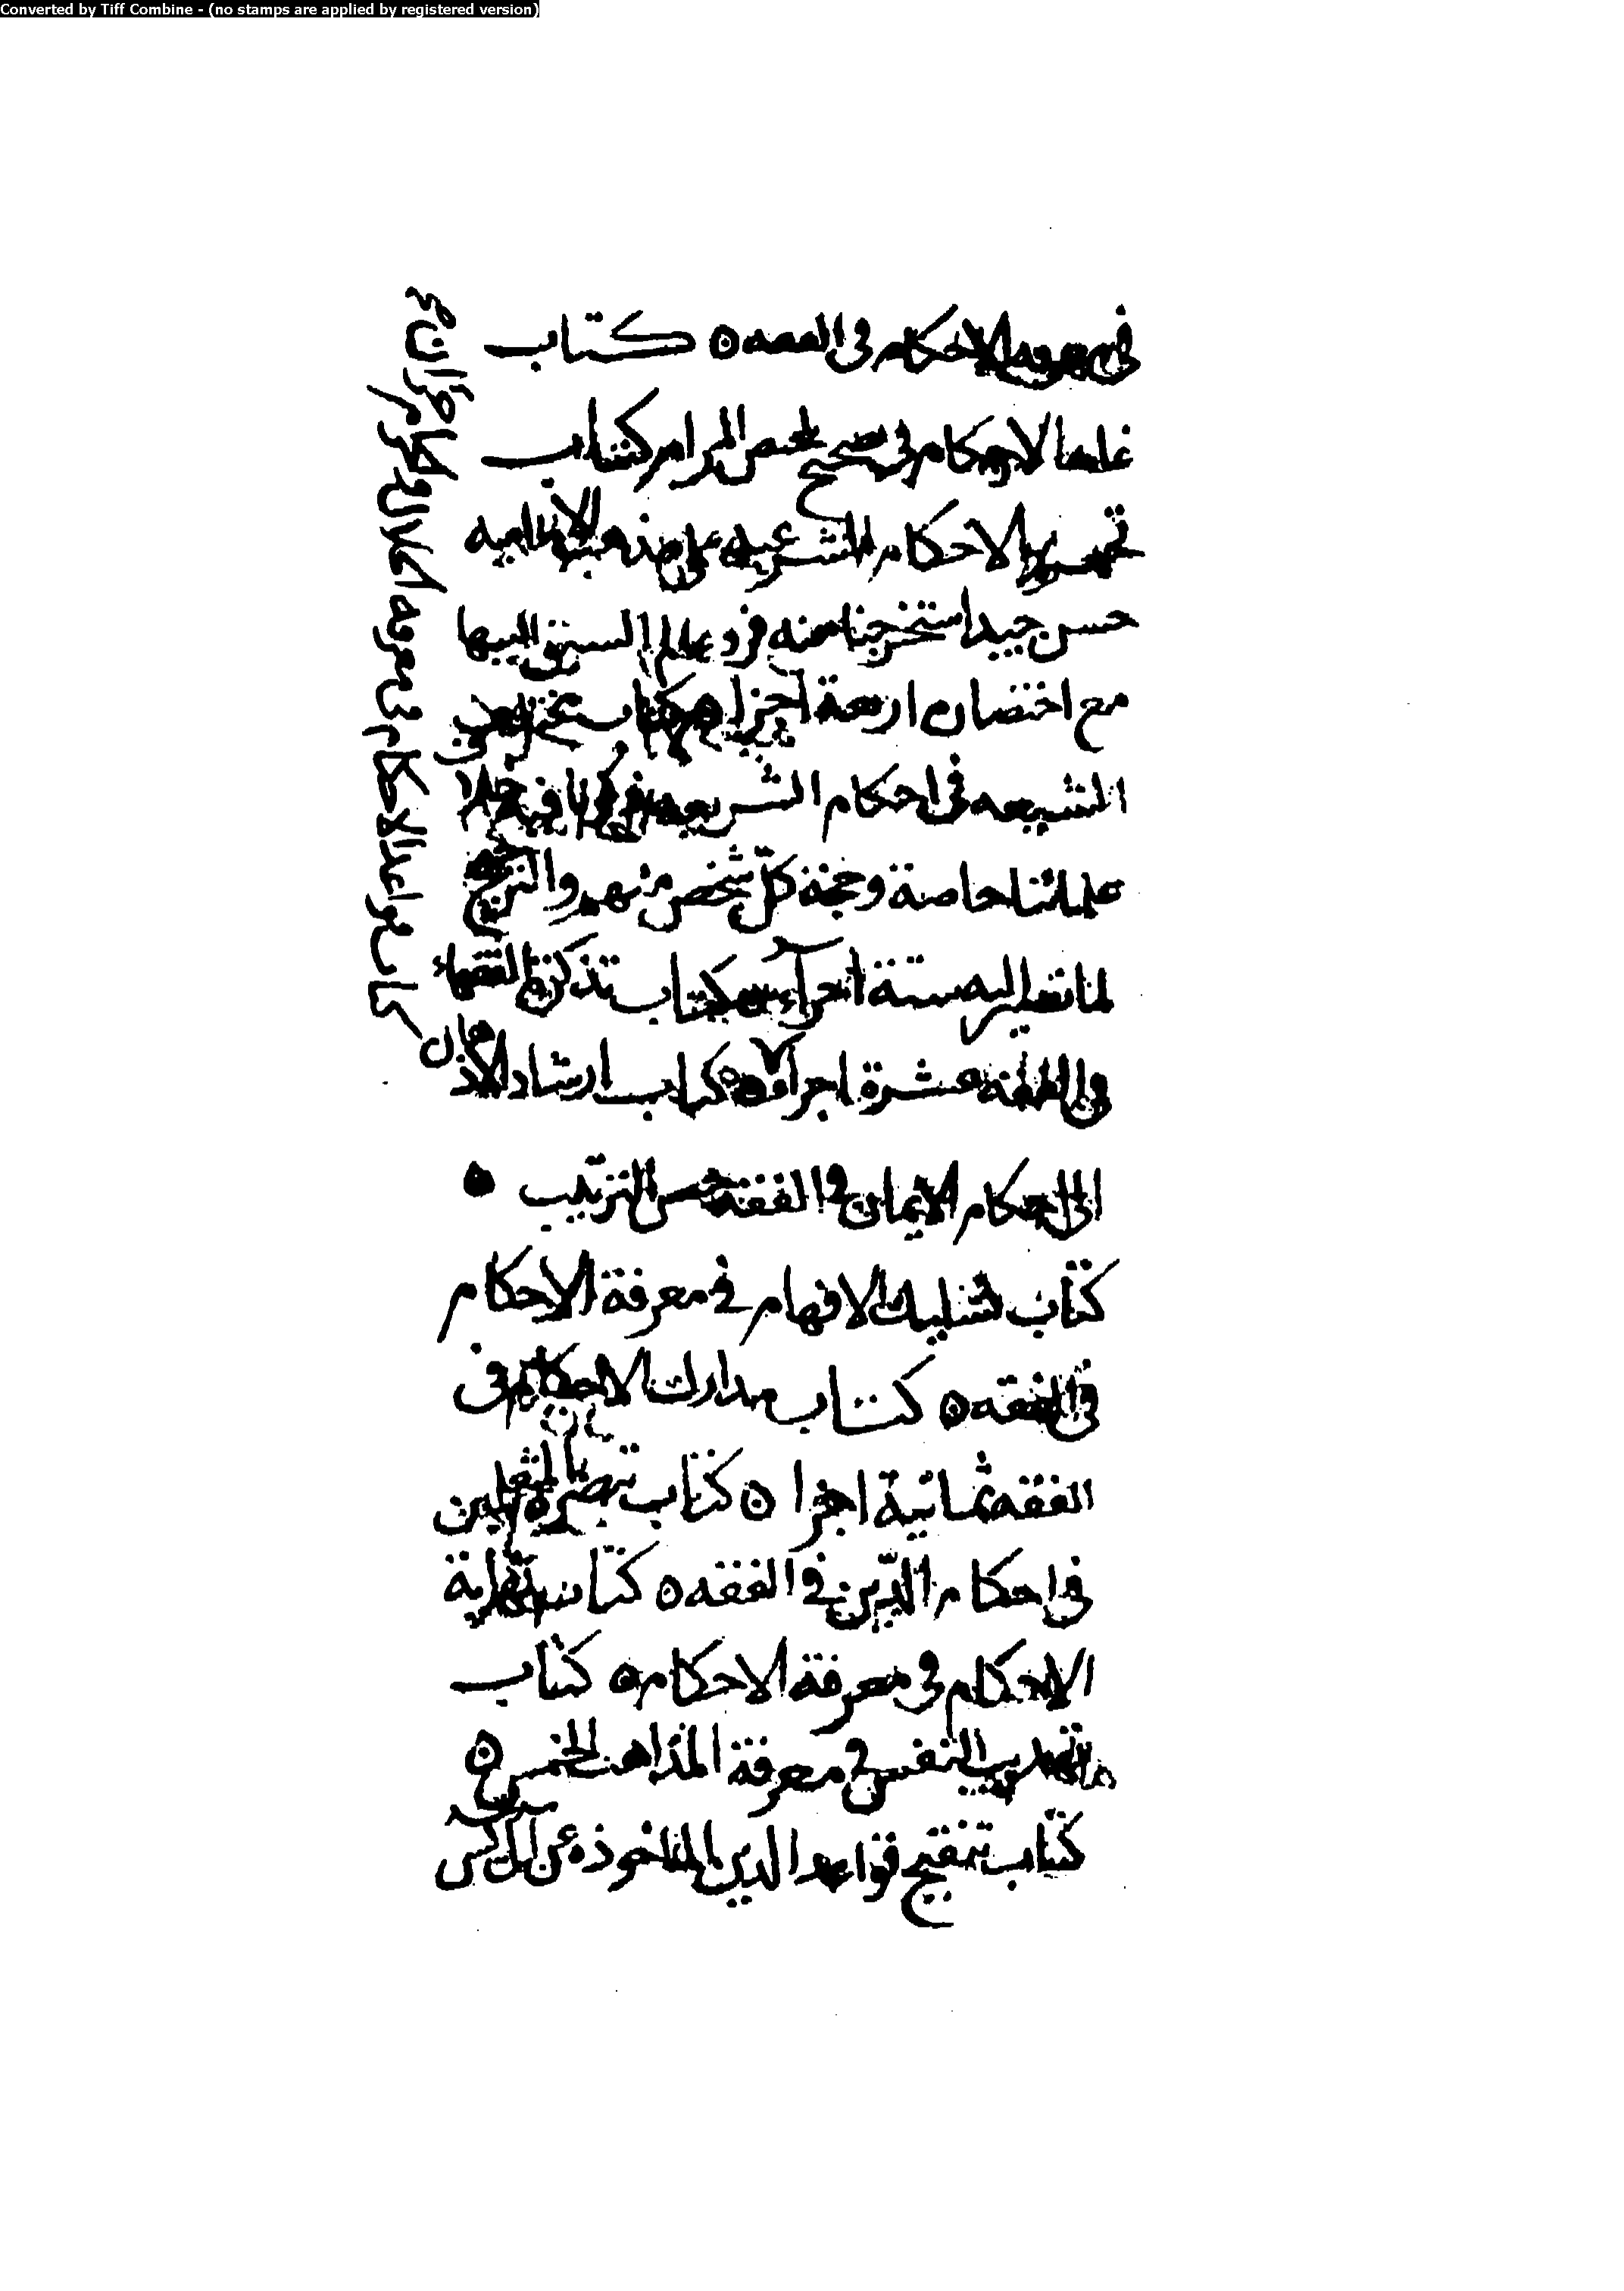 Converted by Tiff Combine - (no stamps are applied by registered version)
فى معرفه الاحكام فى الفقه ٥ كتاب
غايه الاحكام فى تصحيح تلخيص المرام كتاب
تحرير الاحكام الشرعيه على مذهب الاماميه
حسن جيد استخرجنا منه فروعا لم نسبق اليها
مع اختصاره اربعة اجزا ٥ كتاب مختلف
الشيعه فى احكام الشريعه ذكرنا فيه خلاف
علمائنا خاصة وحجة كل شخص منهم والترجيح
لما نصير اليه ستة اجزآء ٥ كتاب تذكرة الفقهاء
فى الفقه عشرة اجزا ٥ كتاب ارشاد الاذهان
الى احكام الايمان فى الفقه حسن الترتيب ٥
كتاب تسليك الافهام فى معرفة الاحكام
فى الفقه ٥ كتاب مدارك الاحكام فى
الفقه ثمانية اجزا ٥ كتاب تبصرة المتعلمين
فى احكام الدين فى الفقه ٥ كتاب نهاية
الاحكام فى معرفة الاحكام ٥ كتاب
تهذيب النفس فى معرفة المذاهب الخمس ٥
كتاب تنقيح قواعد الدين الماخوذه عن آل يس
كتاب قواعد الاحكام فى معرفه الحلال والحرام